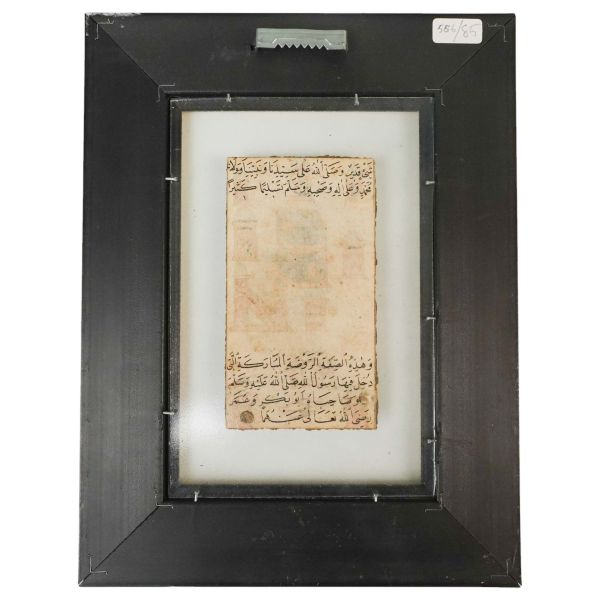 556/85
شئ قدير وصلى الله على سيدنا ونبينا ومولانا
محمد وعلى اله وصحبه وسلم تسليما كثيرا
وهذه الصفة الروضة المباركة التي
دخل فيها رسول الله صلى الله عليه وسلم
وصاحباه ابو بكر وعمر
رضى الله تعالى عنهما